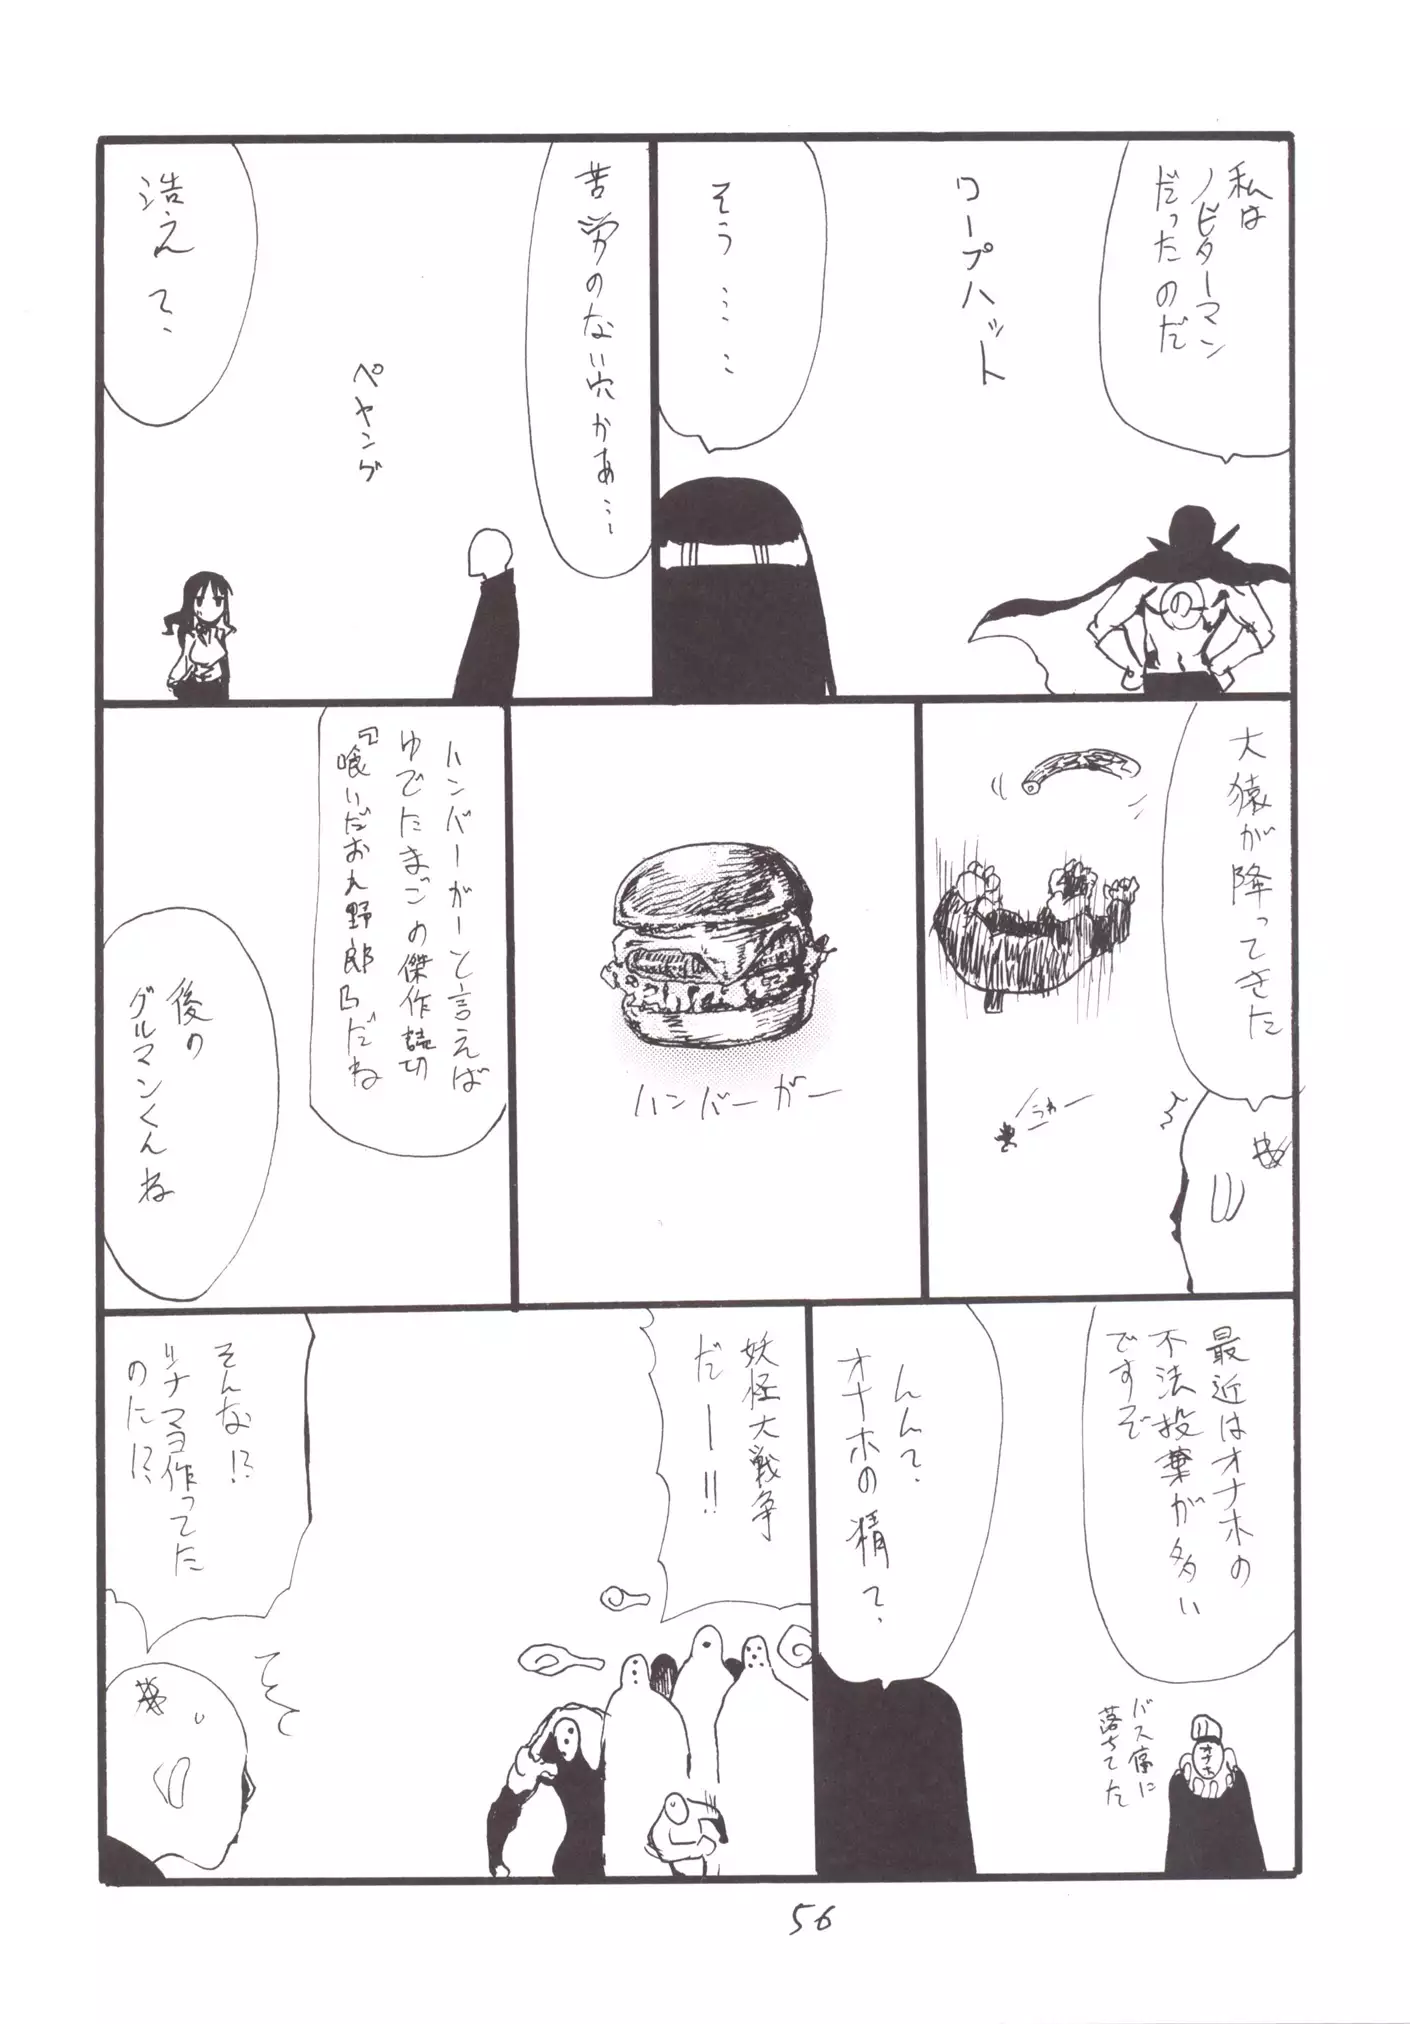 私は
ノビターマン
だったのだ
ワープハット
そう……
苦労のない穴かあ…
ペヤング
浩えて、
大猿が降ってきた
うわー
ハンバーガー
ハンバーガーと言えば
ゆでたまごの傑作読切
『喰いだおれ野郎』だね
後の
グルマンくんね
最近はオナホの
不法投棄が多い
ですぞ
オナホ
バス停に
落ちてた
んんて、
オナホの精て、
妖怪大戦争
だー!!
そんな!?
ツナマヨ作ってた
のに!?
56